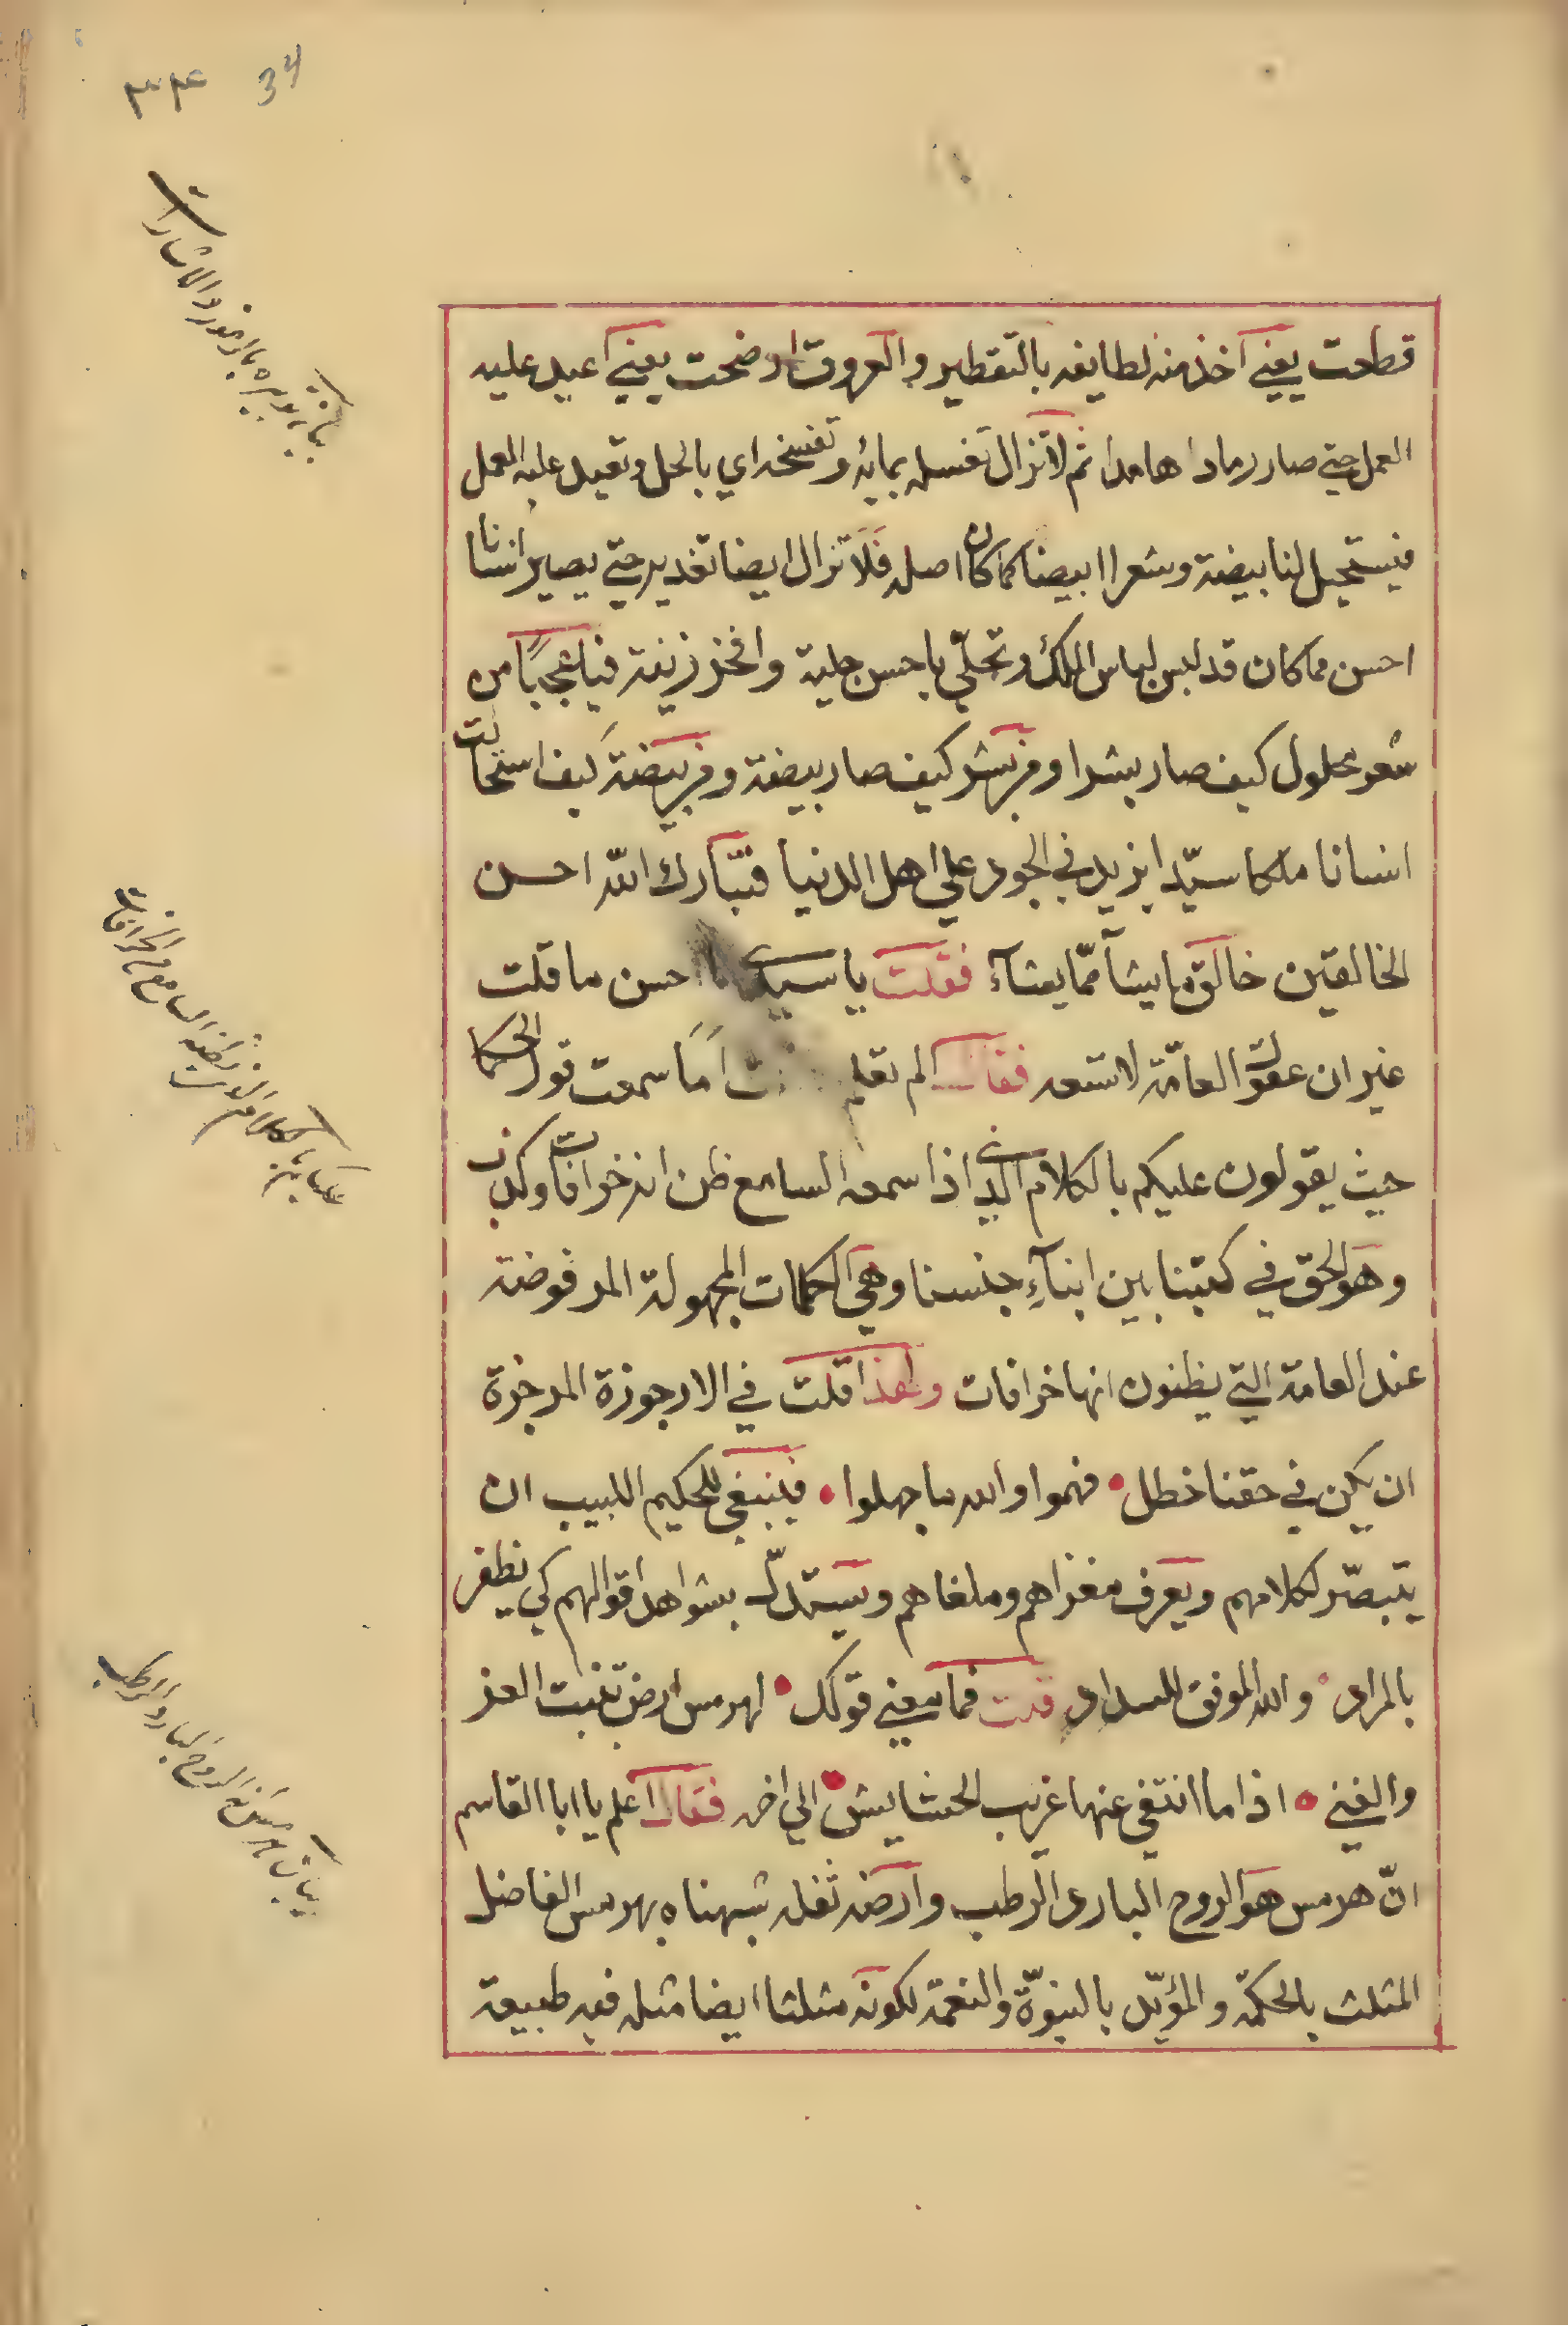 ٣٤ 34
قطعت يعني اخذ منه لطايفه بالتقطير والعروق اوضحت يعني اعيد عليه
العمل حتي صار رمادا هامدا ثم لا تزال تغسله بمائه وتفسخه اي بالحل وتعيد عليه العمل
فيستحيل لنا بيضة وشعرا ابيضا كما كان اصله فلا تزال ايضا تغديه حتي يصير انسانا
احسن مما كان قد لبس لباس الملك وتحلّي باحسن حلية وافخر زينة فيا عجبًا من
شعر محلول كيف صار بشرا ومن بشر كيف صار بيضة ومن بيضة كيف استحالت
انسانا ملكا سيّدا يزيد في الجود علي اهل الدنيا فتبارك الله احسن
الخالقين خالق ما يشآ ممّا يشآء فقلت يا سيدي ما احسن ما قلت
غير ان عقول العامّة لا تسعه فقال الم تعلم اما سمعت قول الحكما
حيث يقولون عليكم بالكلام الذي اذا سمعه السامع ظن انه خرافات وكذب
وهو الحق في كتبنا بين ابنآء جنسنا وهي الكلمات المجهولة المرفوضة
عند العامة التي يظنون انها خرافات ولهذا قلت في الارجوزة المرجزة
ان يكن في حقنا خطل • فهموا والله ما جهلوا • فينبغي للحكيم اللبيب ان
يتبصّر لكلامهم ويعرف مغزاهم وملغاهم ويستدلّ بشواهد اقوالهم كي يظفر
بالمراد • والله الموفق للسداد قلت فما معني قولك • لهرمس ارض تنبت العز
والغني • اذا ما انتفي عنها غريب الحشايش • الي اخره فقال اعلم يا ابا القاسم
انّ هرمس هو الروح البارد الرطب وارضه ثفله شبهناه بهرمس الفاضل
المثلث بالحكمة والمؤيّد بالنبوّة والنعمة لكونه مثلثا ايضا مثله فيه طبيعة
عليكم بالكلام الذي اذا ظنه السامع الخرافات
بيان هرمس هو الروح البارد الرطب